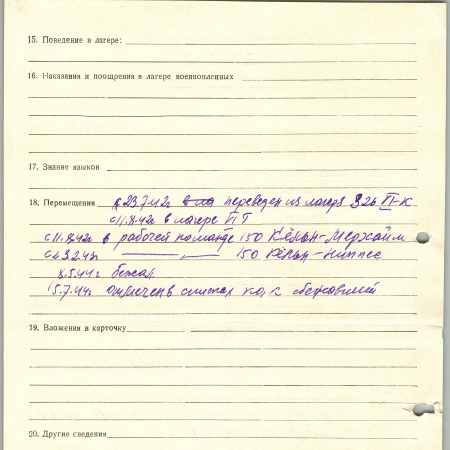 15. Поведение в лагере:
16. Наказания и поощрения в лагере военнопленных
17. Знание языков
18. Перемещения с 23.7.42г. переведен из лагеря 326 VI-К
с 11.8.42г в лагере VI Г
с 11.8.42г в рабочей команде 150 Кёльн-Мерхайм
150 Кёльн-Ниппес
8.5.44г бежал
15.7.44г отмечен в списках как сбежавший
19. Вложения в карточку
20. Другие сведения